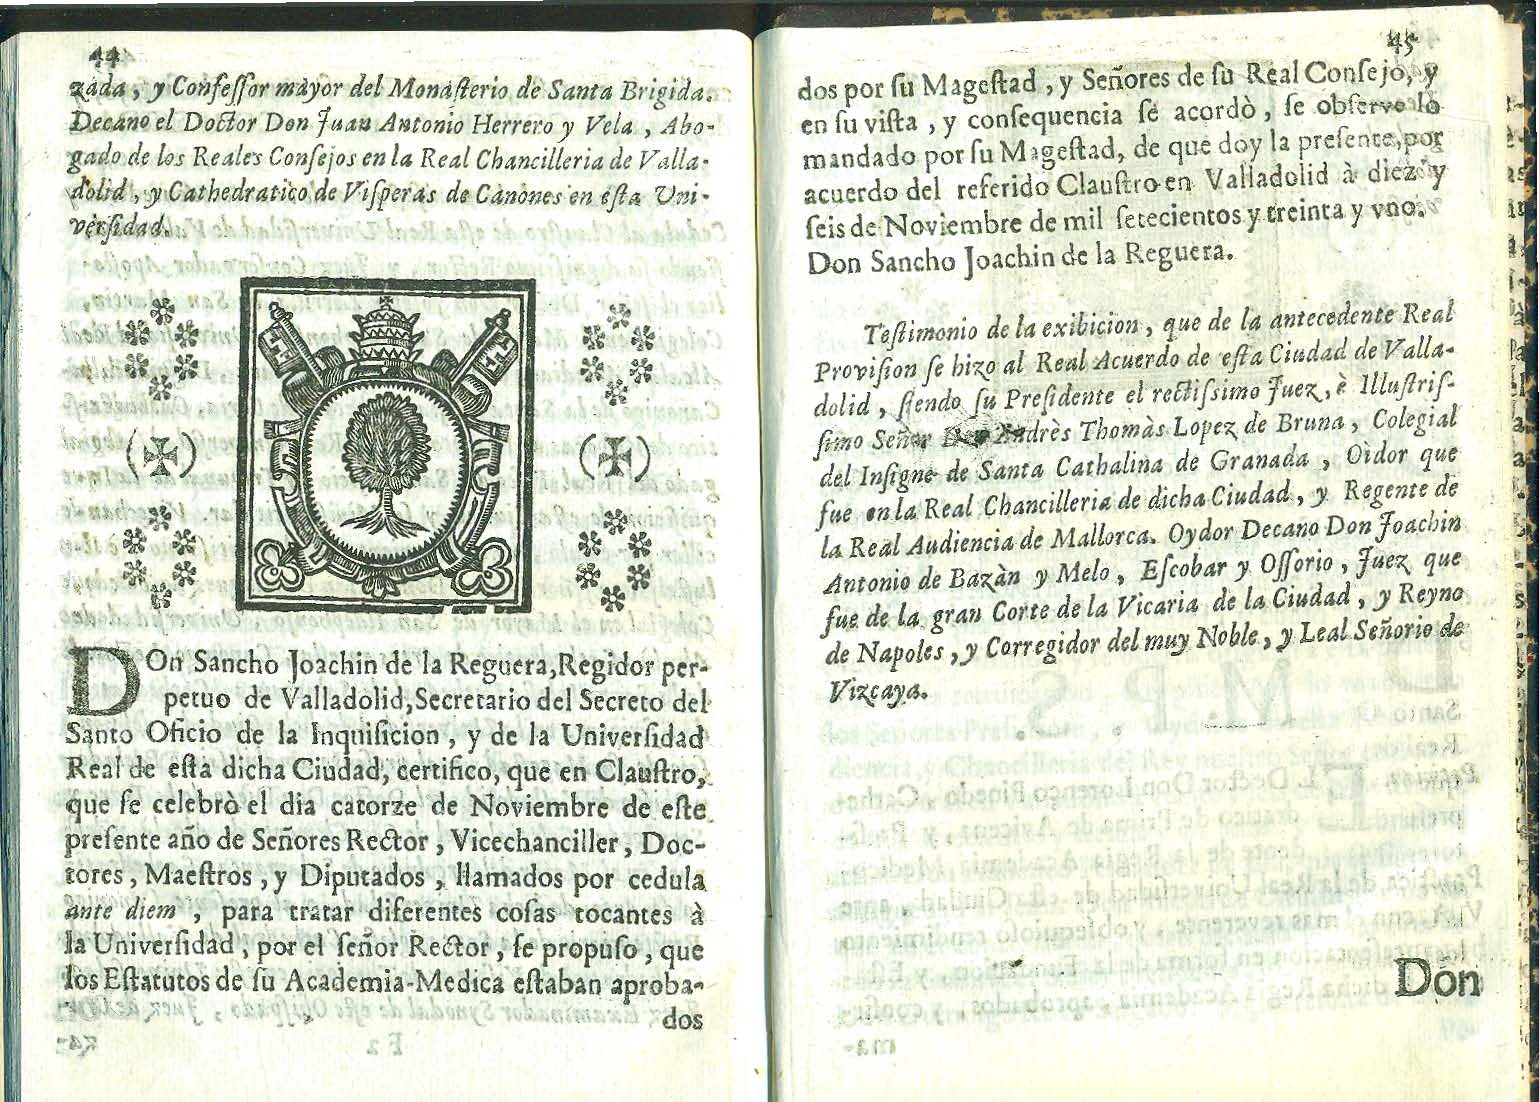 44
zada, y Confeſſor mayor del Monaſterio de Santa Brigida.
Decano el Doctor Don Juan Antonio Herrero y Vela, Abo-
gado de los Reales Conſejos en la Real Chancilleria de Valla-
dolid, y Cathedratico de Viſperas de Canones en eſta Uni-
verſidad.
DOn Sancho Joachin de la Reguera, Regidor per-
petuo de Valladolid, Secretario del Secreto del
Santo Oficio de la Inquiſicion, y de la Univerſidad
Real de eſta dicha Ciudad, certifico, que en Clauſtro,
que ſe celebrò el dia catorze de Noviembre de eſte
preſente año de Señores Rector, Vicechanciller, Doc-
tores, Maeſtros, y Diputados, llamados por cedula
ante diem, para tratar diferentes coſas tocantes à
la Univerſidad, por el ſeñor Rector, ſe propuſo, que
los Eſtatutos de ſu Academia-Medica eſtaban aproba-
dos
45
dos por ſu Mageſtad, y Señores de ſu Real Conſejo, y
en ſu viſta, y conſequencia ſe acordò, ſe obſerve lo
mandado por ſu Mageſtad, de que doy la preſente, por
acuerdo del referido Clauſtro en Valladolid à diez y
ſeis de Noviembre de mil ſetecientos y treinta y vno.
Don Sancho Joachin de la Reguera.
Teſtimonio de la exibicion, que de la antecedente Real
Proviſion ſe hizo al Real Acuerdo de eſta Ciudad de Valla-
dolid, ſiendo ſu Preſidente el rectiſsimo Juez, è Illuſtriſ-
ſimo Señor Don Andrès Thomàs Lopez de Bruna, Colegial
del Inſigne de Santa Cathalina de Granada, Oidor que
fue en la Real Chancilleria de dicha Ciudad, y Regente de
la Real Audiencia de Mallorca. Oydor Decano Don Joachin
Antonio de Bazàn y Melo, Eſcobar y Oſſorio, Juez que
fue de la gran Corte de la Vicaria de la Ciudad, y Reyno
de Napoles, y Corregidor del muy Noble, y Leal Señorio de
Vizcaya.
Don